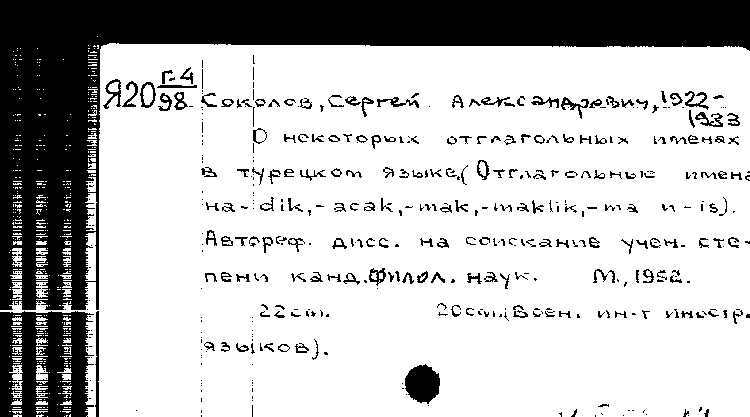 Я20 Г-4/98 Соколов, Сергей Александрович, 1922-
1983
О некоторых отглагольных именах
в турецком языке. (Отглагольные имена
на - dik, - acak, - mak, - maklik, - ma и - is).
Автореф. дисс. на соискание учен. сте-
пени канд. филол. наук. М., 1952.
22см. 20см. (Воен. ин-т иностр.
языков).